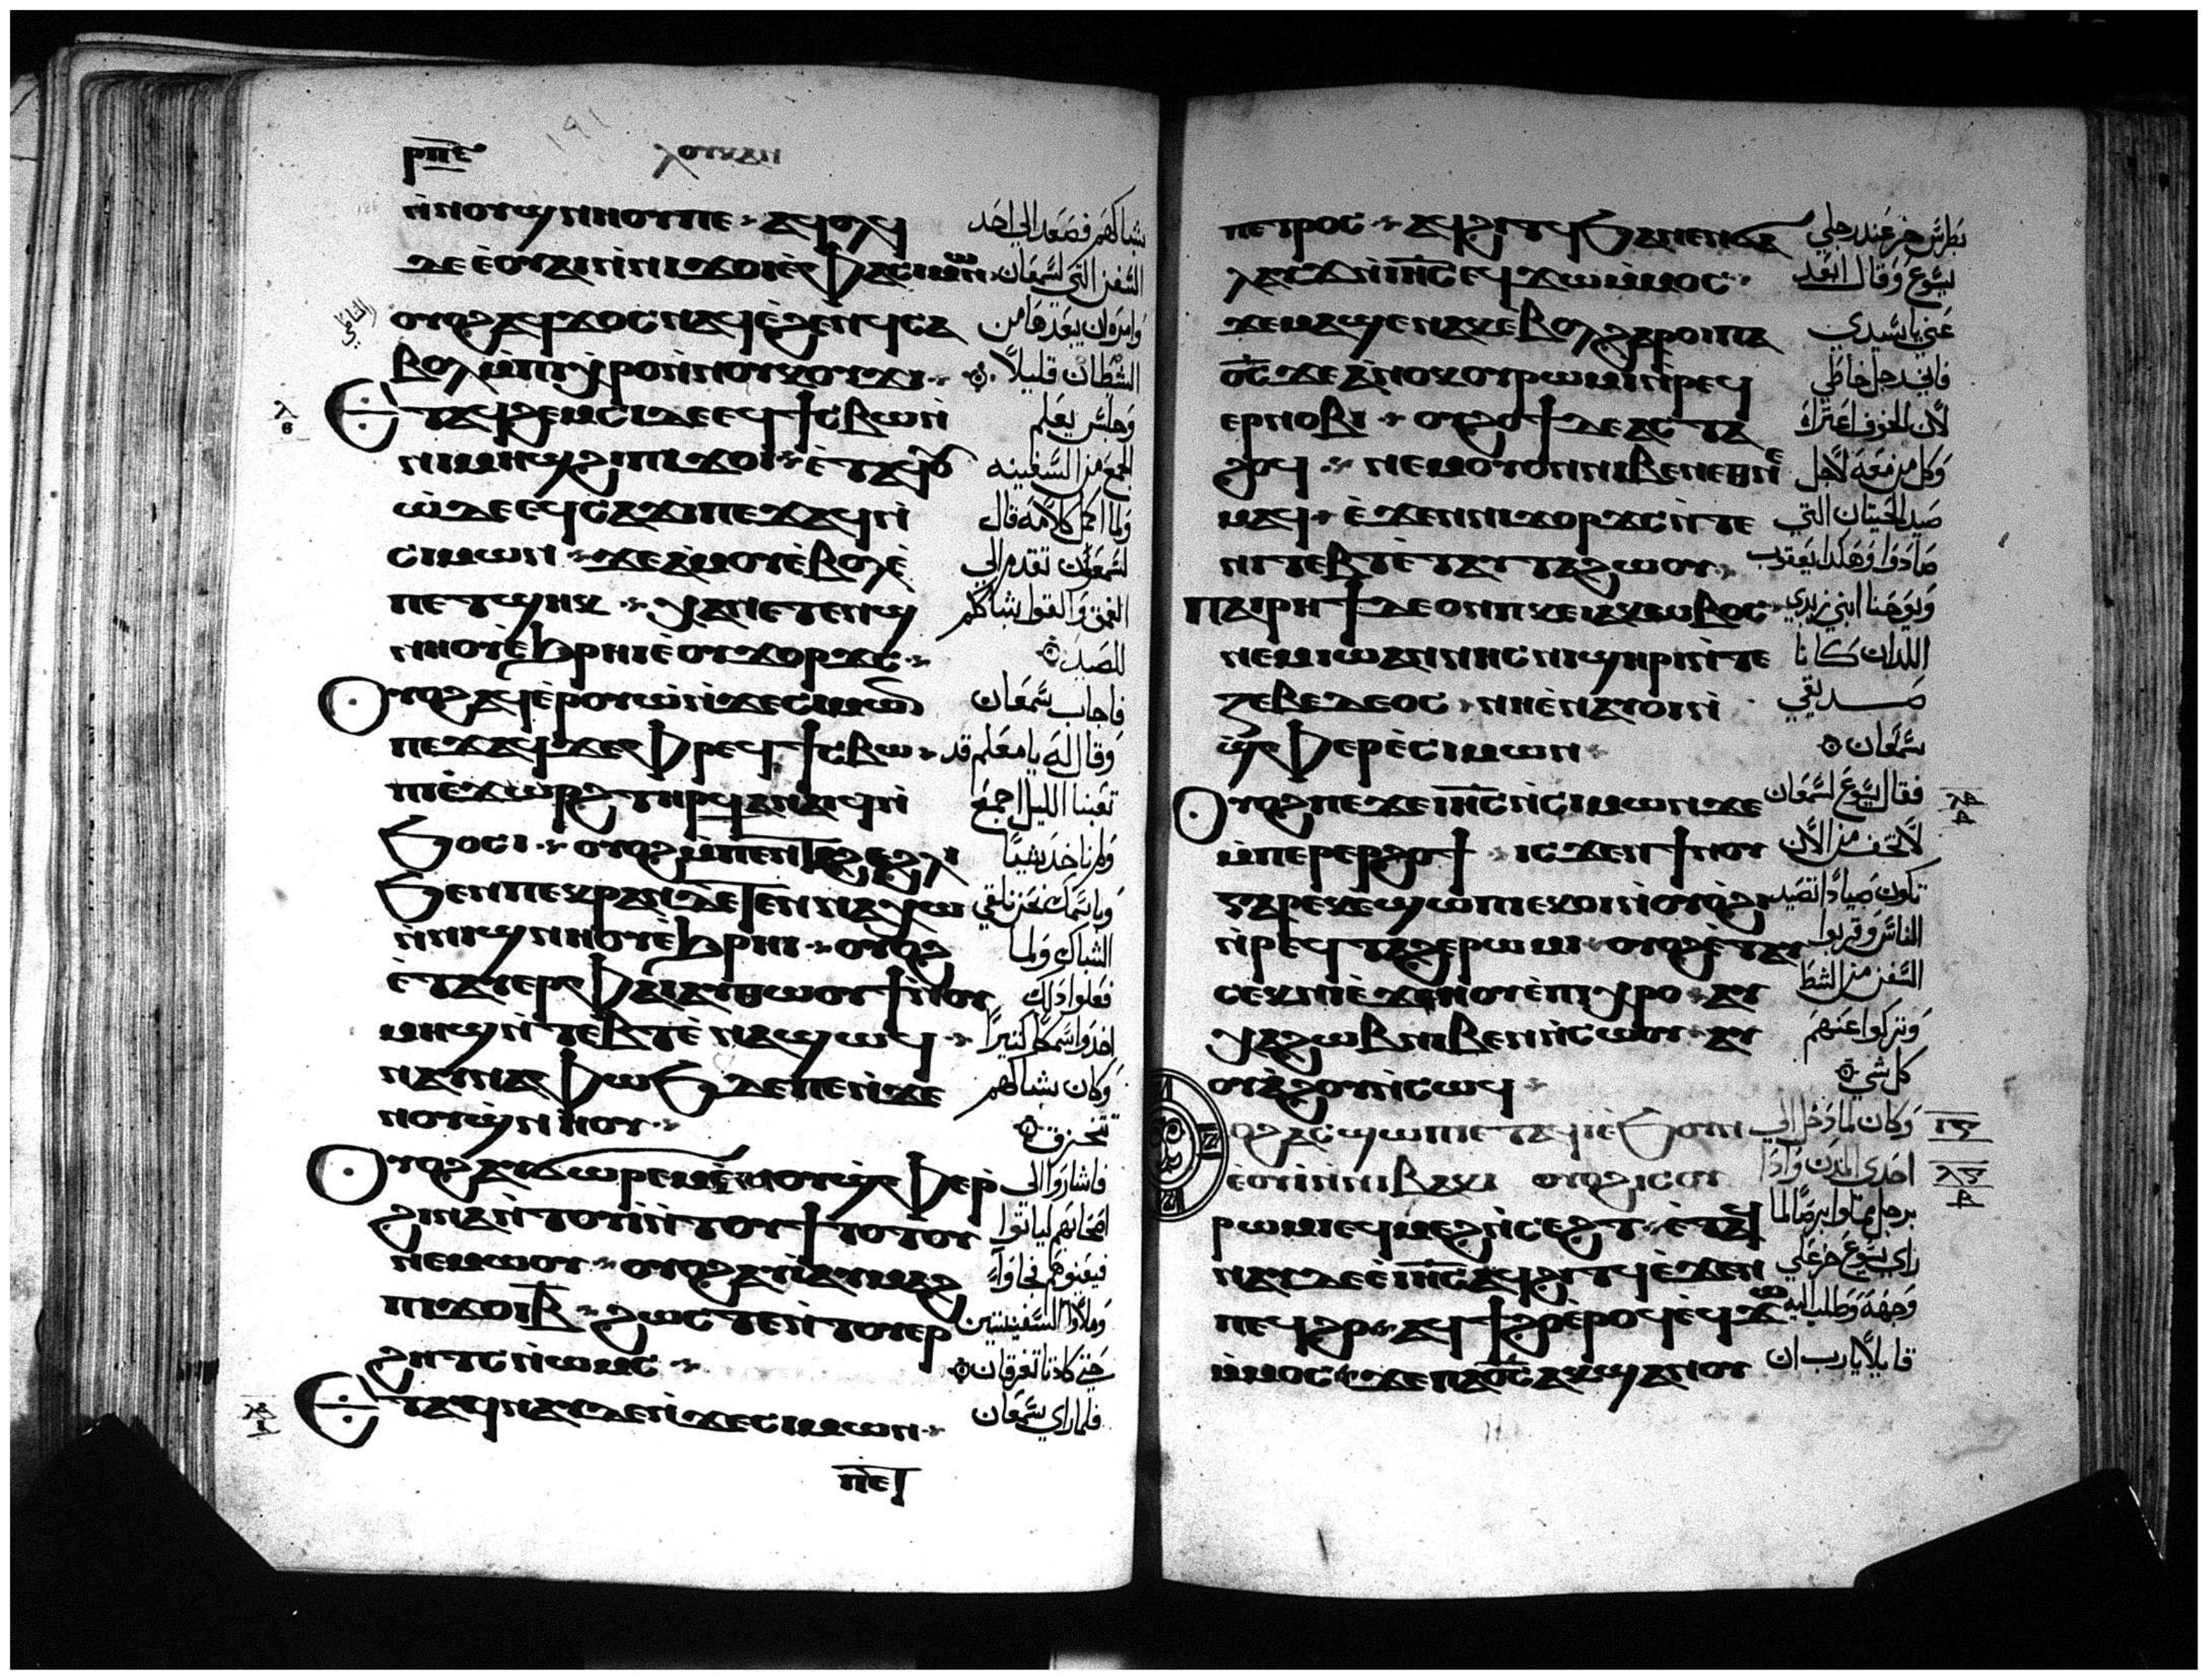 ⲣⲡⲉ ⲗⲟⲩⲕⲁⲛ
ⲛ̀ⲛⲟⲩϣⲛⲏⲟⲩ ⲡⲉ ⲁϥⲁⲗⲏⲓ
ⲇⲉ ⲉ̀ⲟⲩⲁⲓ ⲛ̀ⲛⲓϫⲟⲓ ⲉ̀ ⲫⲁ ⲥⲓⲙⲱⲛ
ⲟⲩⲟϩ ⲁϥϫⲟⲥ ⲛⲁϥ ⲉ̀ϩⲉⲛϥ ⲥⲁ
ⲃⲟⲗ ⲙ̀ⲡⲓⲭⲣⲟ ⲛ̀ⲛⲟⲩⲕⲟⲩϫⲓ
Ⲉⲧⲁϥϩⲉⲙⲥⲓ ⲇⲉ ⲉϥϯⲥⲃⲱ ⲛ̀
ⲛⲓⲙⲏϣ ϩⲓ ⲡⲓϫⲟⲓ ⲉ̀ⲧⲁϥⲟ
ⲱ̀ ⲇⲉ ⲉϥⲥⲁϫⲓ ⲡⲉϫⲁϥ ⲛ̀
ⲥⲓⲙⲱⲛ ϫⲉ ⲁ̀ⲙⲟⲩ ⲉ̀ⲃⲟⲗ ⲉ̀
ⲡⲉⲧϣⲏⲕ ⲭⲁ ⲛⲉⲧⲉⲛϣ
ⲛⲏⲟⲩ ⲉ̀ϧⲣⲏⲓ ⲉ̀ⲟⲩϫⲟⲣϫⲥ
Ⲟⲩⲟϩ ⲁϥⲉ̀ⲣⲟⲩⲱ̀ ⲛ̀ϫⲉ ⲥⲓⲙⲱⲛ
ⲡⲉϫⲁϥ ϫⲉ ⲫⲣⲉϥϯⲥⲃⲱ
ⲡⲓⲉ̀ϫⲱⲣϩ ⲧⲏⲣϥ ⲁⲛⲁϥⲛ̀
ϧⲟⲥⲓ ⲟⲩⲟϩ ⲙ̀ⲡⲉⲛⲧⲁϩⲉ ϩⲗⲓ
ϧⲉⲛ ⲡⲉⲕⲣⲁⲛ ⲇⲉ ⲧⲉⲛⲛⲁⲭⲱ
ⲛ̀ⲛⲓϣⲛⲏⲟⲩ ⲉ̀ϧⲣⲏⲓ ⲟⲩⲟϩ
ⲉ̀ⲧⲁⲩⲉⲣ ⲫⲁⲓ ⲁⲩⲑⲱⲟⲩϯ ⲛ̀ⲟⲩ
ⲙⲏϣ ⲛ̀ⲧⲉⲃⲧ ⲉ̀ⲛⲁϣⲱϥ
ⲛⲁⲩⲛⲁⲫⲱϧ ⲇⲉ ⲡⲉ ⲛ̀ϫⲉ
ⲛⲟⲩϣⲛⲏⲟⲩ
Ⲟⲩⲟϩ ⲁⲩϭⲱⲣⲉⲙ ⲉ̀ⲛⲟⲩϣⲫⲉⲣ
ϩⲓⲛⲁ ⲛ̀ⲧⲟⲩⲓ̀ ⲛ̀ⲧⲟⲩϯⲧⲟⲧⲟⲩ
ⲛⲉⲙⲱⲟⲩ ⲟⲩⲟϩ ⲁⲩⲓ̀ ⲁⲩⲙⲁϩ
ⲡⲓϫⲟⲓ ⲃ̅ ϩⲱⲥⲧⲉ ⲛ̀ⲧⲟⲩⲉⲣ
ϩⲏⲧⲥ ⲛ̀ⲱⲙⲥ
Ⲉⲧⲁϥⲛⲁⲩ ⲇⲉ ⲛ̀ϫⲉ ⲥⲓⲙⲱⲛ
ⲡⲉⲧ
بشباكهم فصعد الي احد
السفن التي لسمعان
وامره ان يبعدها من
الشطان قليلاً
وجلس يعلم
الجمع من السفينه
ولما اكمل كلامه قال
لسمعان تقدم الي
العمق والقوا شباككم
للصيد
فاجاب سمعان
وقال له يا معلم قد
تعبنا الليل اجمع
ولم ناخذ شيئًا
وباسمك نحن نلقي
الشباك ولما
فعلوا ذلك
اخذوا سمكًا كثيرًا
وكان شباكهم
تتخرق
فاشاروا الى
اصحابهم لياتوا
فيعينوهم فجاوا
وملاوا السفينتين
حتي كادتا تغرقان
فلما راي سمعان
ⲡⲉⲧⲣⲟⲥ ⲁϥϩⲓⲧϥ ϧⲁ ⲛⲉⲛϭⲁ
ⲗⲁⲩϫ ⲛ̀ⲓⲏ̅ⲥ ⲉϥϫⲱ ⲙ̀ⲙⲟⲥ
ϫⲉ ⲙⲁϣⲉⲛⲁⲕ ⲉ̀ⲃⲟⲗ ϩⲁⲣⲟⲓ ⲡⲁ
ⲟ̅ⲥ̅ ϫⲉ ⲁ̀ⲛⲟⲕ ⲟⲩⲣⲱⲙⲓ ⲛ̀ⲣⲉϥ
ⲉⲣⲛⲟⲃⲓ ⲟⲩϩⲟϯ ⲇⲉ ⲁⲥⲧⲁ
ϩⲟϥ ⲛⲉⲙ ⲟⲩⲟⲛ ⲛⲓⲃⲉⲛ ⲉⲑⲛⲉ
ⲙⲁϥ ⲉ̀ϫⲉⲛ ⲛⲓϫⲟⲣϫⲥ ⲛ̀ⲧⲉ
ⲛⲓⲧⲉⲃⲧ ⲉ̀ⲧⲁⲩⲧⲁϩⲱⲟⲩ
Ⲡⲁⲓⲣⲏϯ ⲇⲉ ⲟⲛ ⲡⲕⲉⲓⲁⲕⲱⲃⲟⲥ
ⲛⲉⲙ ⲓⲱⲁⲛⲛⲏⲥ ⲛⲓϣⲏⲣⲓ ⲛ̀ⲧⲉ
ⲍⲉⲃⲉⲇⲉⲟⲥ ⲛⲏ ⲉ̀ⲛⲁⲩⲟⲓ ⲛ̀
ϣⲫⲉⲣ ⲉ̀ⲥⲓⲙⲱⲛ
Ⲟⲩⲟϩ ⲡⲉϫⲉ ⲓⲏ̅ⲥ ⲛ̀ⲥⲓⲙⲱⲛ ϫⲉ
ⲙ̀ⲡⲉⲣⲉⲣϩⲟϯ ⲓⲥϫⲉⲛ ϯⲛⲟⲩ
ⲅⲁⲣ ⲉⲕⲉϣⲱⲡⲓ ⲉⲕⲟⲓ ⲛ̀ⲟⲩⲟϩⲓ
ⲛ̀ⲣⲉϥⲧⲁϩⲉ ⲣⲱⲙⲓ ⲟⲩⲟϩ ⲉ̀ⲧⲁⲩ
ⲥⲉⲕ ⲛⲓⲉ̀ϫⲏⲟⲩ ⲉ̀ⲡⲓⲭⲣⲟ ⲁⲩ
ⲭⲁ ϩⲱⲃ ⲛⲓⲃⲉⲛ ⲛ̀ⲥⲱⲟⲩ ⲁⲩ
ⲟⲩⲁϩⲟⲩ ⲛ̀ⲥⲱϥ
ⲟϩ ⲁⲥϣⲱⲡⲓ ⲉⲧⲁϥⲓ̀ ⲉ̀ϧⲟⲩⲛ
ⲉ̀ⲟⲩⲓ̀ ⲛ̀ⲛⲓⲃⲁⲕⲓ ⲟⲩⲟϩ ⲓⲥ ⲟⲩ
ⲣⲱⲙⲓ ⲉϥⲙⲉϩ ⲛ̀ⲥⲉϩⲧ ⲉ̀ⲧⲁϥ
ⲛⲁⲩ ⲇⲉ ⲉ̀ⲓⲏ̅ⲥ ⲁϥϩⲓⲧϥ ⲉ̀ϫⲉⲛ
ⲡⲉϥϩⲟ ⲁϥϯϩⲟ ⲉ̀ⲣⲟϥ ⲉϥϫⲱ
ⲙ̀ⲙⲟⲥ ϫⲉ ⲡⲁⲟ̅ⲥ̅ ⲁⲕϣⲁⲛⲟⲩ
بطرس خر عند رجلي
يسوع وقال ابعد
عني يا سيدي
فاني رجل خاطي
لان الخوف اعتراه
وكل من معه لاجل
صيد الحيتان التي
صادوا وهكذا يعقوب
ويوحنا ابني زبدي
اللذان كانا
صديقي
سمعان
فقال يسوع لسمعان
لا تخف من الان
تكون صيادًا تصيد
الناس وقربوا
السفن من الشط
وتركوا عنهم
كل شي
وكان لما دخل الي
احدي المدن واذا
برجل مملوا برصًا لما
راي يسوع خر علي
وجهه وطلب اليه
قايلاً يا رب ان